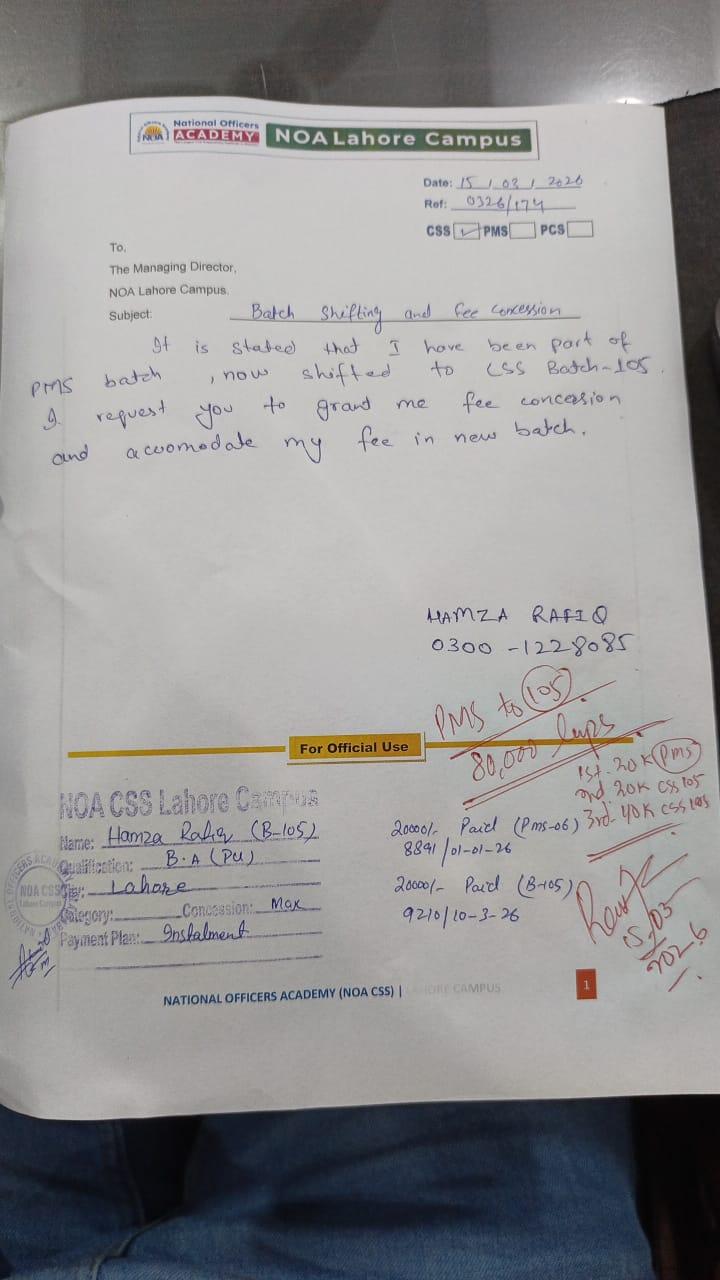 National Officers
ACADEMY
NOA
NOA Lahore Campus
Date: 15 / 03 / 2026
Ref: 0326/174
CSS ✓ PMS PCS
To,
The Managing Director,
NOA Lahore Campus.
Subject: Batch Shifting and fee concession
It is stated that I have been part of
PMS batch , now shifted to CSS Batch-105.
I request you to grant me fee concession
and accomodate my fee in new batch.
HAMZA RAFIQ
0300 -1228085
PMS to 105
80,000
1st. 20K PMS
2nd 20K CSS 105
3rd. 40K CSS 105
For Official Use
NOA CSS Lahore Campus
Name: Hamza Rafiq (B-105)
Qualification: B.A (PU)
City: Lahore
Category: Concession: Max
Payment Plan: Instalment
NOA CSS
Lahore Campus
20000/- Paid (Pms-06)
8891/01-01-26
20000/- Paid (B-105)
9210/10-3-26
15/03
2026
NATIONAL OFFICERS ACADEMY (NOA CSS) | LAHORE CAMPUS
1